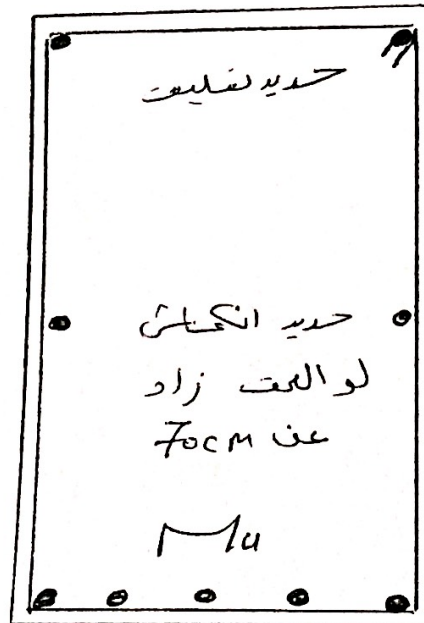 حديد تعليق
حديد انكماش
لو العمق زاد
عن 70cm
Mu